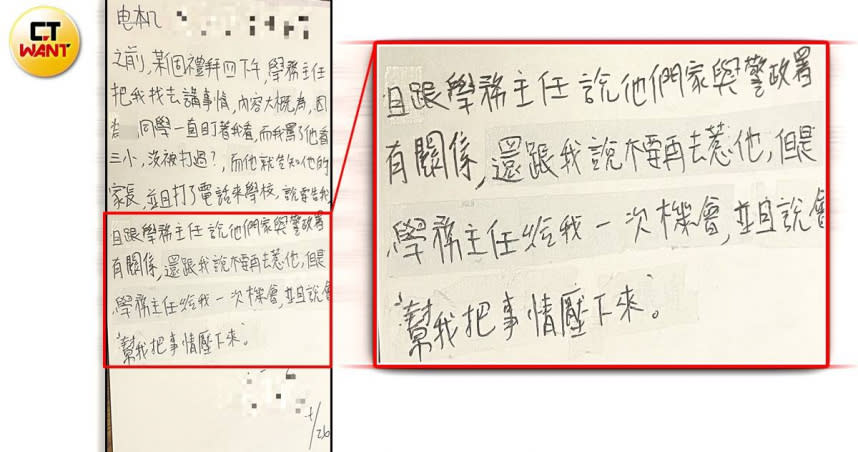 CT
WANT
电机
之前,某個禮拜四下午,學務主任
把我找去講事情,內容大概為,因
同學一直盯著我看,而我罵了他看
三小,沒被打過?,而他就告知他的
家長,並且打了電話來學校,說要告我
且跟學務主任說他們家與警政署
有關係,還跟我說不要再去惹他,但是
學務主任給我一次機會,並且說會
幫我把事情壓下來。
且跟學務主任說他們家與警政署
有關係,還跟我說不要再去惹他,但是
學務主任給我一次機會,並且說會
幫我把事情壓下來。